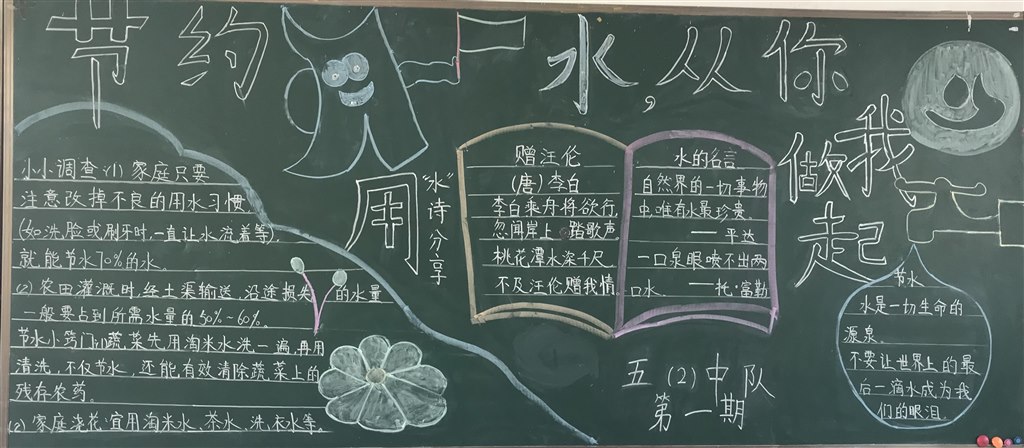 节约用水，从你我做起
小小调查：(1)家庭只要
注意改掉不良的用水习惯
(如洗脸或刷牙时,一直让水流着等),
就能节水70%的水。
(2)农田灌溉时经土渠输送,沿途损失的水量
一般要占到所需水量的50%~60%。
节水小窍门:(1)蔬菜先用淘米水洗一遍,再用
清洗,不仅节水,还能有效清除蔬菜上的
残存农药。
(2)家庭浇花宜用淘米水、茶水、洗衣水等。
“水”诗分享
赠汪伦
(唐)李白
李白乘舟将欲行,
忽闻岸上踏歌声。
桃花潭水深千尺,
不及汪伦赠我情。
水的名言
自然界的一切事物
中,唯有水最珍贵。
——平达
一口泉眼喷不出两
口水。——托·富勒
五(2)中队
第一期
节水
水是一切生命的
源泉。
不要让世界上的最
后一滴水成为我
们的眼泪。